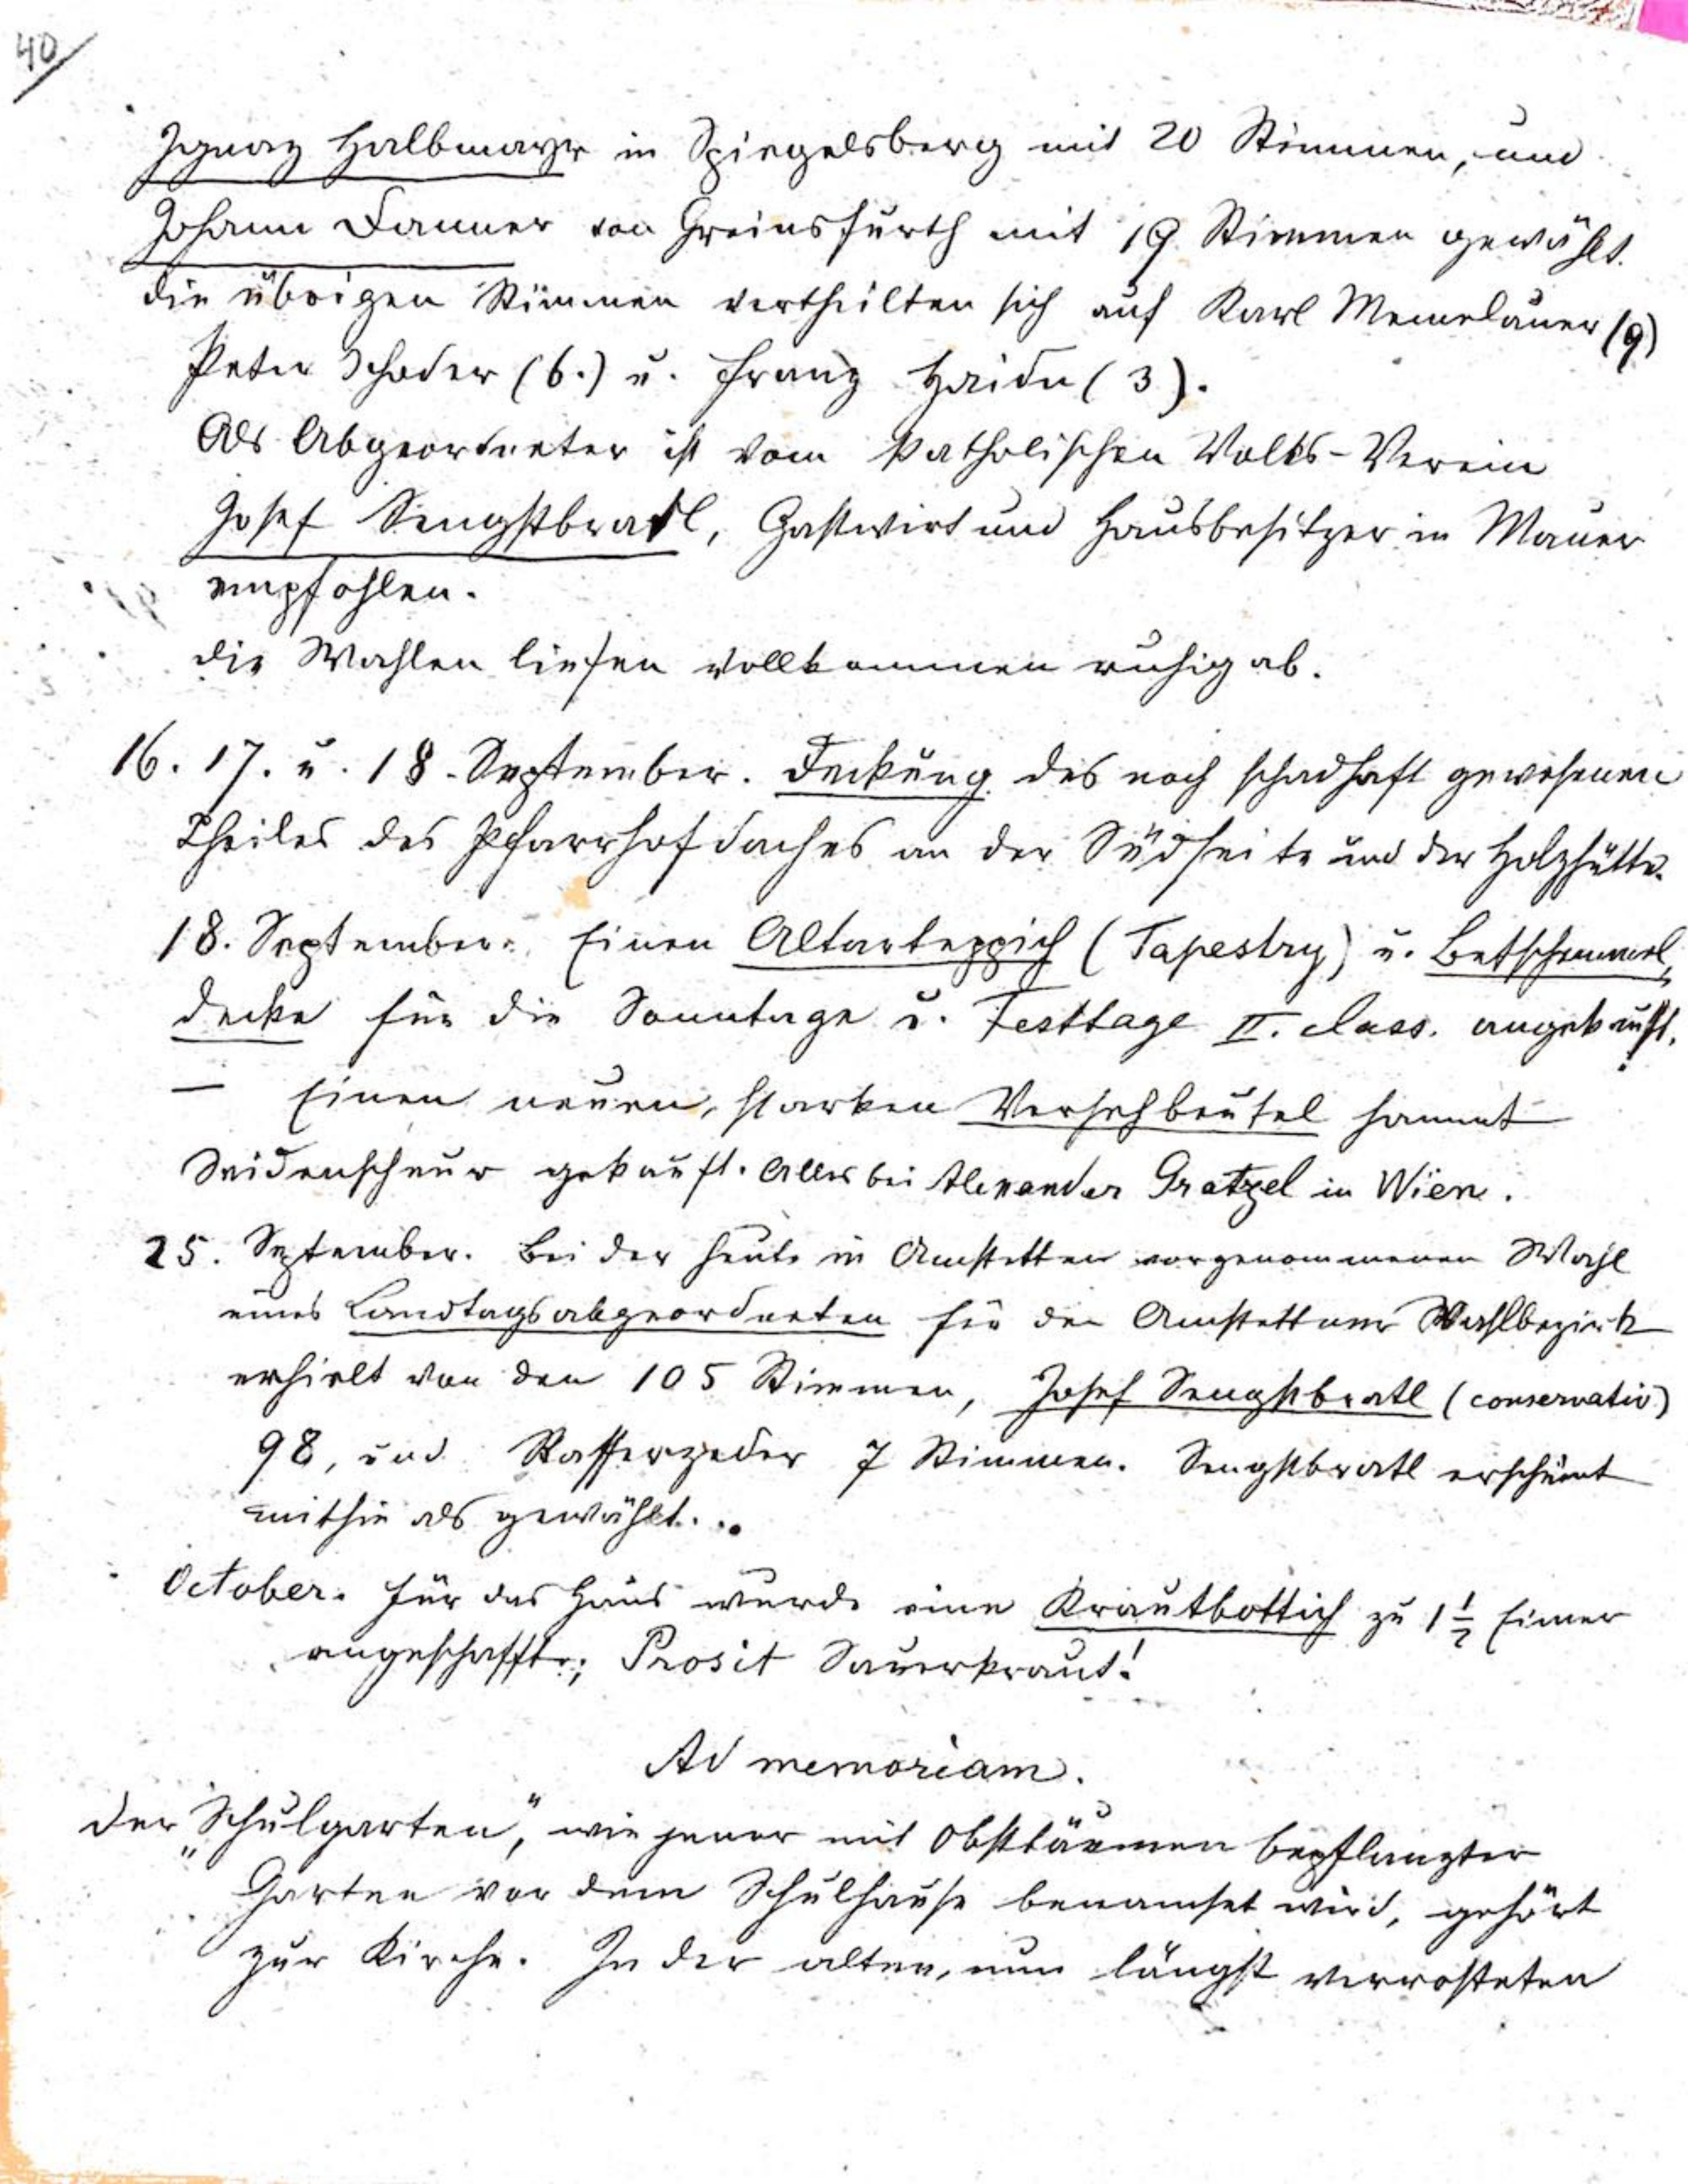 40
Ignaz Halbmayr in Spiegelsberg mit 20 Stimmen, und
Johann Danner von Greinsfurth mit 19 Stimmen gewählt.
die übrigen Stimmen vertheilten sich auf Karl Memelauer (9)
Peter Schoder (6.) u. Franz Haider (3).
Als Abgeordneter ist vom katholischen Volks-Verein
Josef Sengstbratl, Gastwirt und Hausbesitzer in Mauer
empfohlen.
die Wahlen liefen vollkommen ruhig ab.
16. 17. u. 18. September. Deckung des noch schadhaft gewesenen
Theiles des Pfarrhofdaches an der Südseite und der Holzhütte.
18. September. Einen Altarteppich (Tapestry) u. Betschemmel,
decke für die Sonntage u. Festtage II. class. angekauft.
— Einen neuen, starken Versehbeutel sammt
Seidenschnur gekauft. Alles bei Alexander Gratzel in Wien.
25. September. Bei der heute in Amstetten vorgenommenen Wahl
eines Landtagsabgeordneten für den Amstettner Wahlbezirk
erhielt von den 105 Stimmen, Josef Sengstbratl (conservativ)
98, und Stafferzeder 7 Stimmen. Sengstbratl erscheint
mithin als gewählt...
October. Für das Haus wurde eine Krautbottich zu 1 1/2 Eimer
angeschafft; Prosit Sauerkraut!
Ad memoriam.
Der „Schulgarten“, wie jener mit Obstbäumen bepflanzter
Garten vor dem Schulhause benamset wird, gehört
zur Kirche. In der alten, nun längst verrosteten